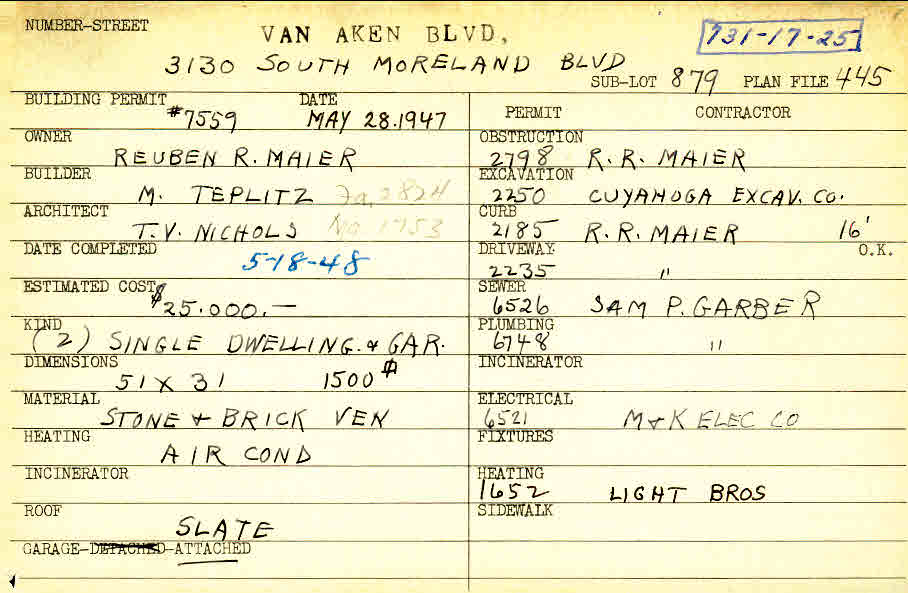 NUMBER-STREET VAN AKEN BLVD, 731-17-25
3130 SOUTH MORELAND BLVD
SUB-LOT 879 PLAN FILE 445
BUILDING PERMIT #7559 DATE MAY 28.1947
OWNER REUBEN R. MAIER
BUILDER M. TEPLITZ Fa. 2824
ARCHITECT T.V. NICHOLS No 1753
DATE COMPLETED 5-18-48
ESTIMATED COST $25.000.—
KIND (2) SINGLE DWELLING. & GAR.
DIMENSIONS 51 X 31 1500 #
MATERIAL STONE & BRICK VEN
HEATING AIR COND
INCINERATOR
ROOF SLATE
GARAGE-DETACHED-ATTACHED
PERMIT CONTRACTOR
OBSTRUCTION 2798 R.R. MAIER
EXCAVATION 2250 CUYAHOGA EXCAV. CO.
CURB 2185 R.R. MAIER 16'
DRIVEWAY 2235 " O.K.
SEWER 6526 SAM P. GARBER
PLUMBING 6748 "
INCINERATOR
ELECTRICAL 6521 M & K ELEC CO
FIXTURES
HEATING 1652 LIGHT BROS
SIDEWALK